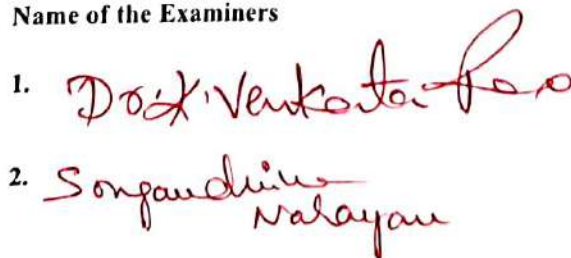 Name of the Examiners
1. Dr. K. Venkata Rao
2.
Narayan